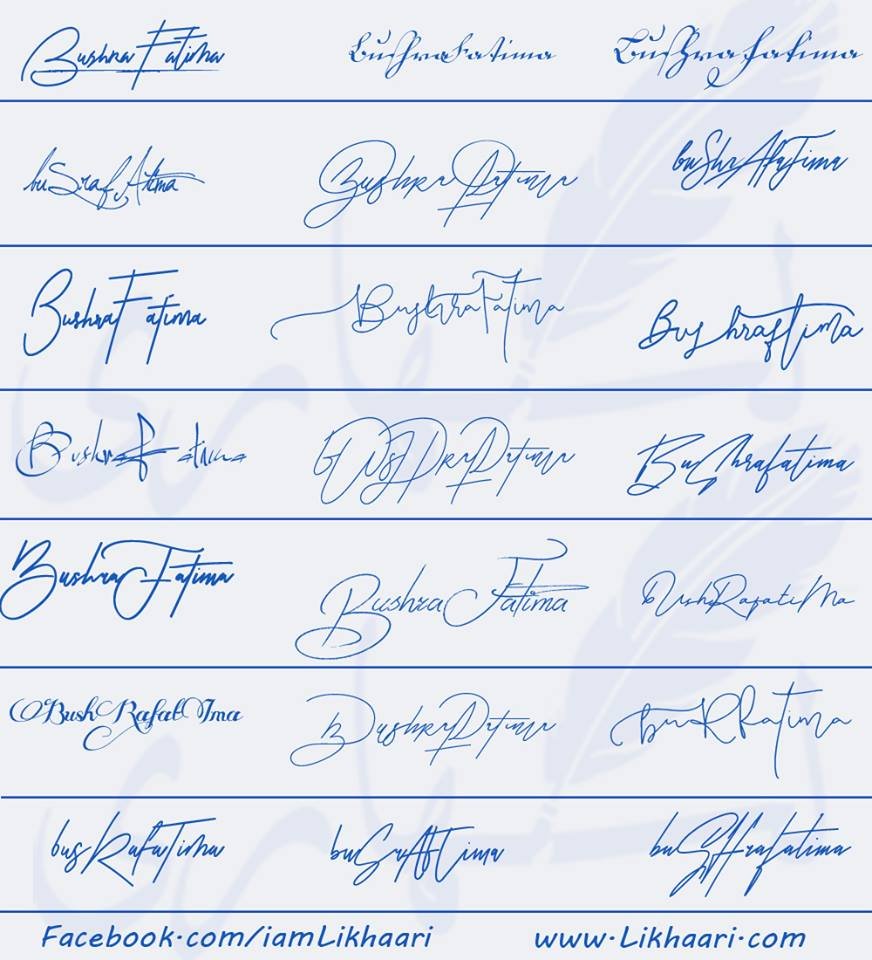 Bushra Fatima buShraFatima BuShra fatima
buSraf Atima Bushra Fatima buShrAfaTima
Bushra Fatima BushhraFatima Bushraftima
Bushra Fatima BUSHRa Fatima BuShrafatima
Bushra Fatima Bushra Fatima bUshRafatiMa
BushRafatIma Bushra Fatima buRFatima
busRafaTima buSrAfTima buSHrafatima
Facebook.com/iamLikhaari www.Likhaari.com